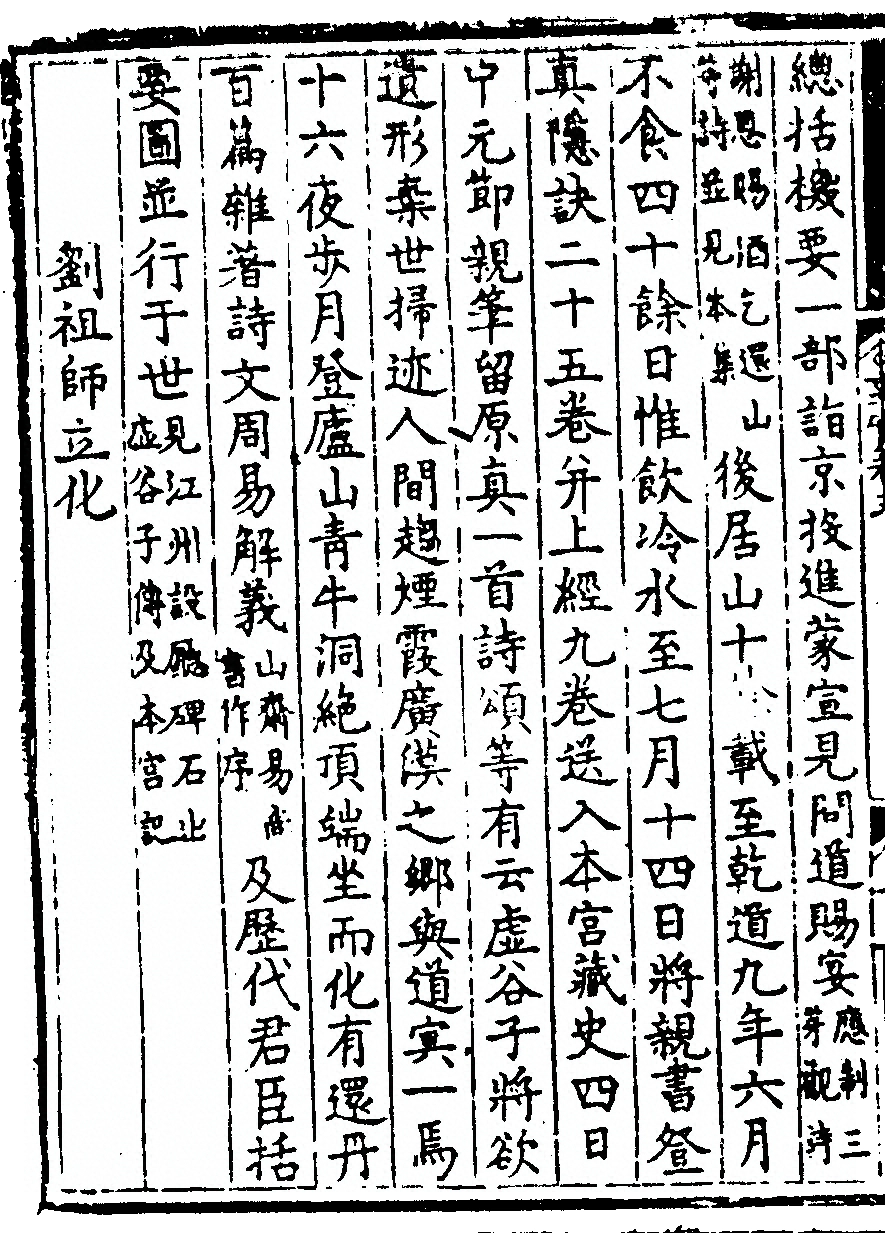 總括機要一部詣京投進蒙宣見問道賜宴應制三茅觀詩
謝恩賜酒乞還山等詩並見本集後居山十餘載至乾道九年六月
不食四十餘日惟飲冷水至七月十四日將親書登
真隱訣二十五卷并上經九卷送入本宮藏史四日
中元節親筆留原真一首詩頌等有云虛谷子將欲
遺形棄世掃迹人間趨煙霞廣漠之鄉與道冥一焉
十六夜步月登廬山青牛洞絶頂端坐而化有還丹
百篇雜著詩文周易解義山齋易民嘗作序及歷代君臣括
要圖並行于世見江州設廳碑石止虛谷子傳及本宮記
劉祖師立化